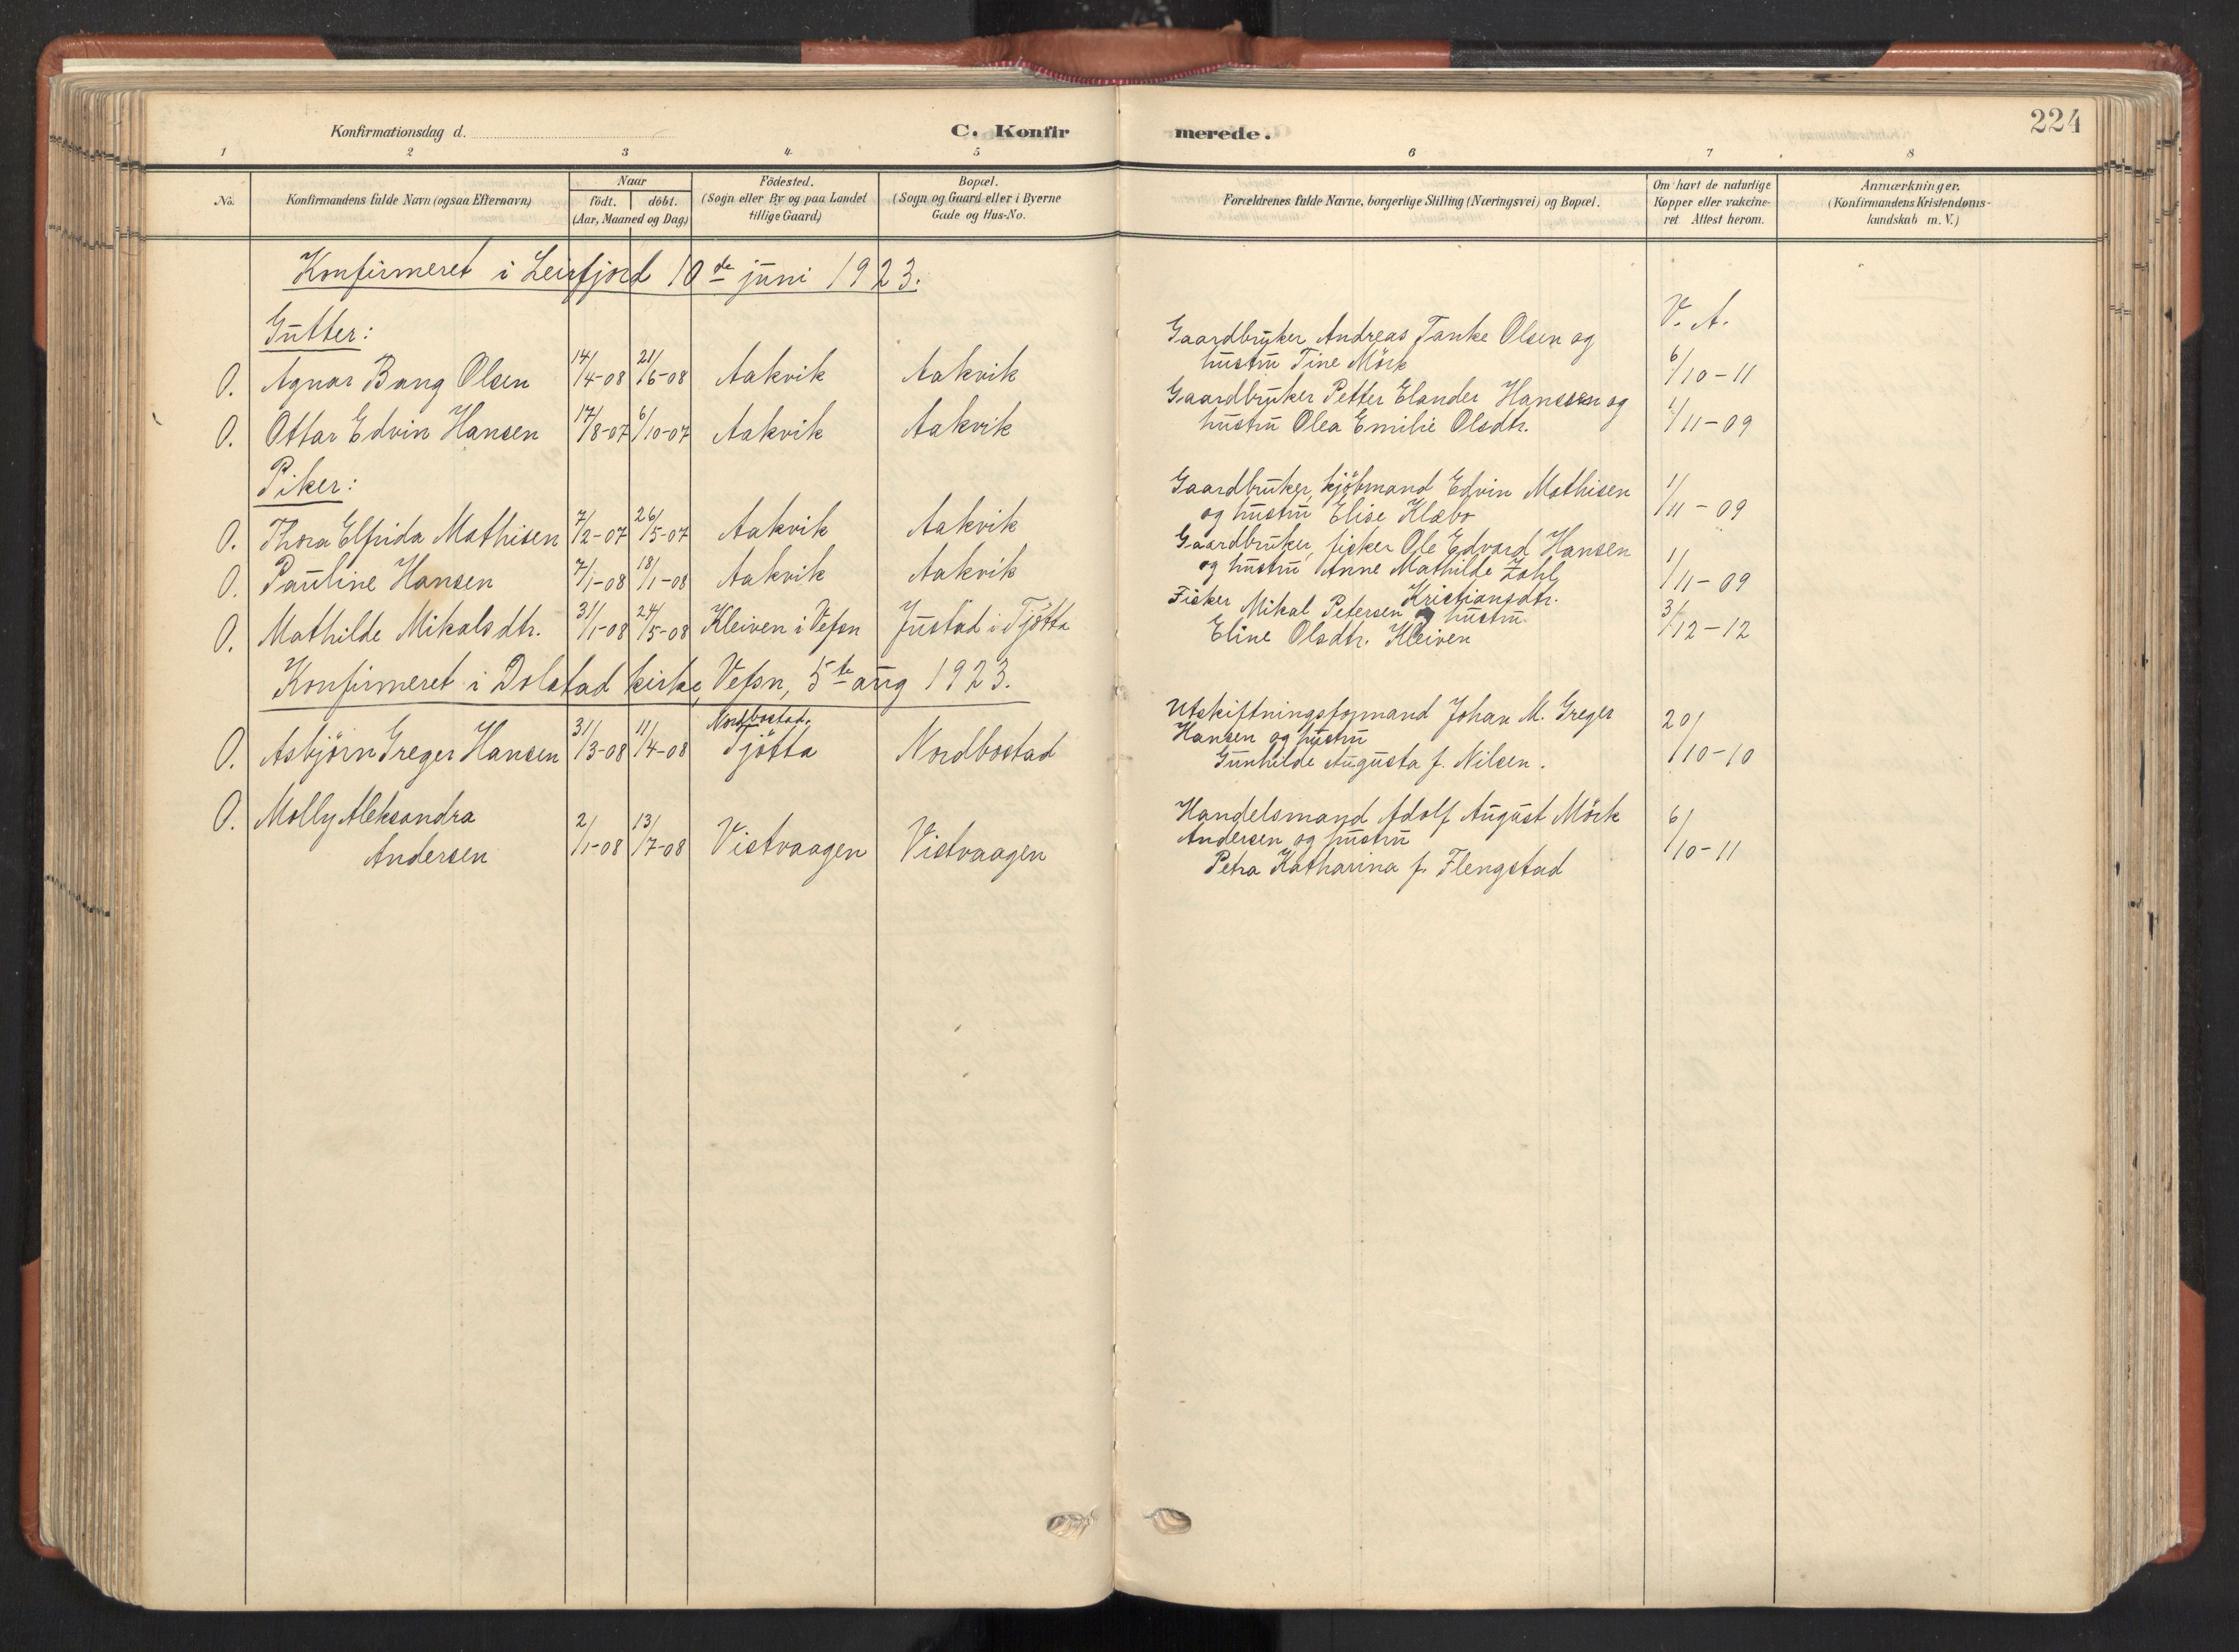 224
Konfirmationsdag d. C. Konfirmerede.
1 2 3 4 5 6 7 8
No.
Konfirmandens fulde Navn (ogsaa Efternavn)
Naar
födt. döbt.
(Aar, Maaned og Dag)
Födested.
(Sogn eller By og paa Landet
tillige Gaard)
Bopæl.
(Sogn og Gaard eller i Byerne
Gade og Hus-No.
Forældrenes fulde Navne, borgerlige Stilling (Næringsvei) og Bopæl.
Om havt de naturlige
Kopper eller vakcine-
ret Attest herom.
Anmærkninger.
(Konfirmandens Kristendoms-
kundskab m. V.)
Konfirmeret i Leirfjord 10de juni 1923.
V. A.
Gutter:
Gaardbruker Andreas Tanke Olsen og
hustru Tine Mörk
O. Agnar Bang Olsen 14/4-08 21/6-08 Aakvik Aakvik 6/10-11
Gaardbruker Petter Elander Hanssen og
hustru Olea Emilie Olsdtr.
O. Ottar Edvin Hansen 17/8-07 6/10-07 Aakvik Aakvik 1/11-09
Piker:
Gaardbruker, kjöbmand Edvin Mathisen
og hustru Elise Klæbo
O. Thora Elfrida Mathisen 7/2-07 26/5-07 Aakvik Aakvik 1/11-09
Gaardbruker, fisker Ole Edvard Hansen
og hustru Anne Mathilde Zahl
O. Pauline Hansen 7/1-08 18/1-08 Aakvik Aakvik 1/11-09
Kristiansdtr.
Fisker Mikal Petersen og hustru
Eline Olsdtr. Kleiven
O. Mathilde Mikalsdtr. 31/1-08 24/5-08 Kleiven i Vefsn Justad i Tjötta 3/12-12
Konfirmeret i Dolstad kirke, Vefsn, 5te aug 1923.
Utskiftningsformand Johan M. Greger
Hansen og hustru
Gunhilde Augusta f. Nilsen.
Nordbostad,
O. Asbjörn Greger Hansen 31/3-08 11/4-08 Tjötta Nordbostad 20/10-10
Handelsmand Adolf August Mörk
Andersen og hustru
Petra Katharina f. Flengstad
O. Molly Aleksandra
Andersen 2/1-08 13/7-08 Vistvaagen Vistvaagen 6/10-11